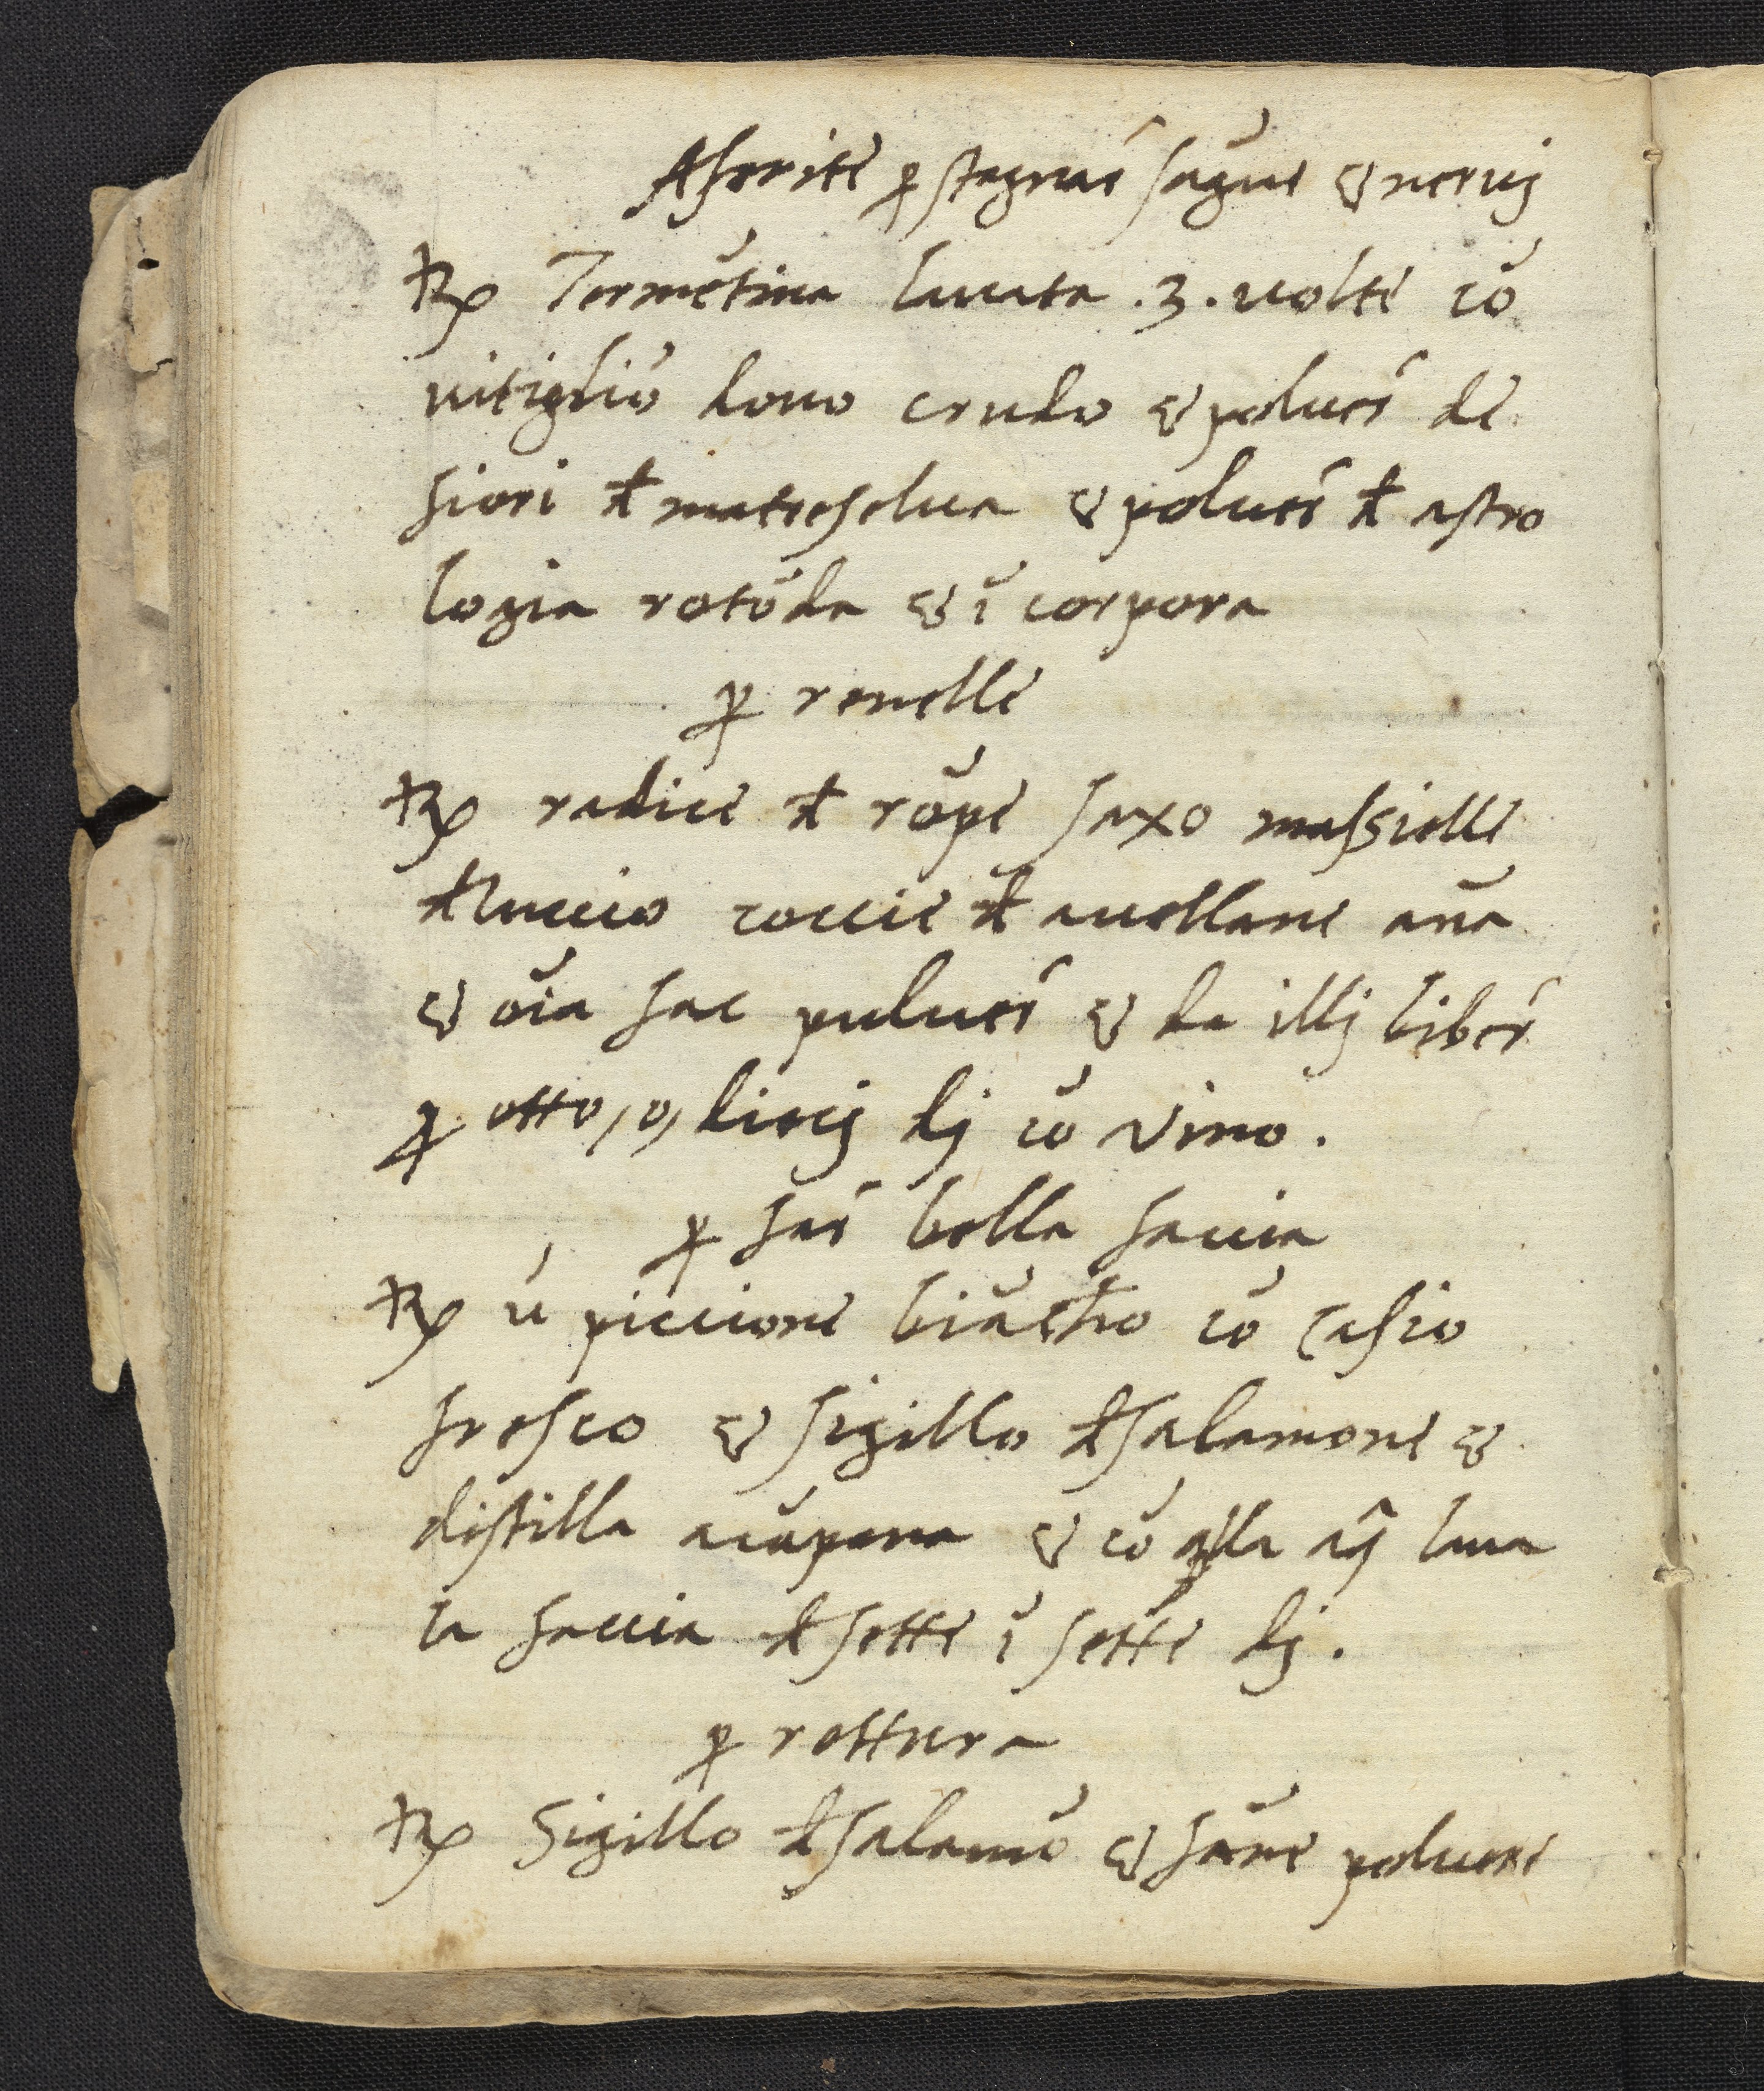 A ferite ꝑ stagnar̃ sãgue & neruj
℞ Termẽtina lauata .3. uolte cõ
uitigliõ douo crudo & poluer̃ de
fiori đ matreselua & poluer̃ đ astro
logia rotõda & ĩcorpora
ꝑ renelle
℞ radice đ rõpe saxo massielle
đ luccio coccie đ auellane anã
& oĩa fac puluer̃ & da illj biber̃
ꝑ otto, o, diecj dj cõ vino.
ꝑ far̃ bella faccia
℞ ũ piccione biãcho cõ casio
fresco & sigillo đ salamone &
distilla a cãpana & cõ qlla aq̃ laua
la faccia đ sette ĩ sette dj.
ꝑ rottura
℞ Sigillo đ salamõ & fãne poluere